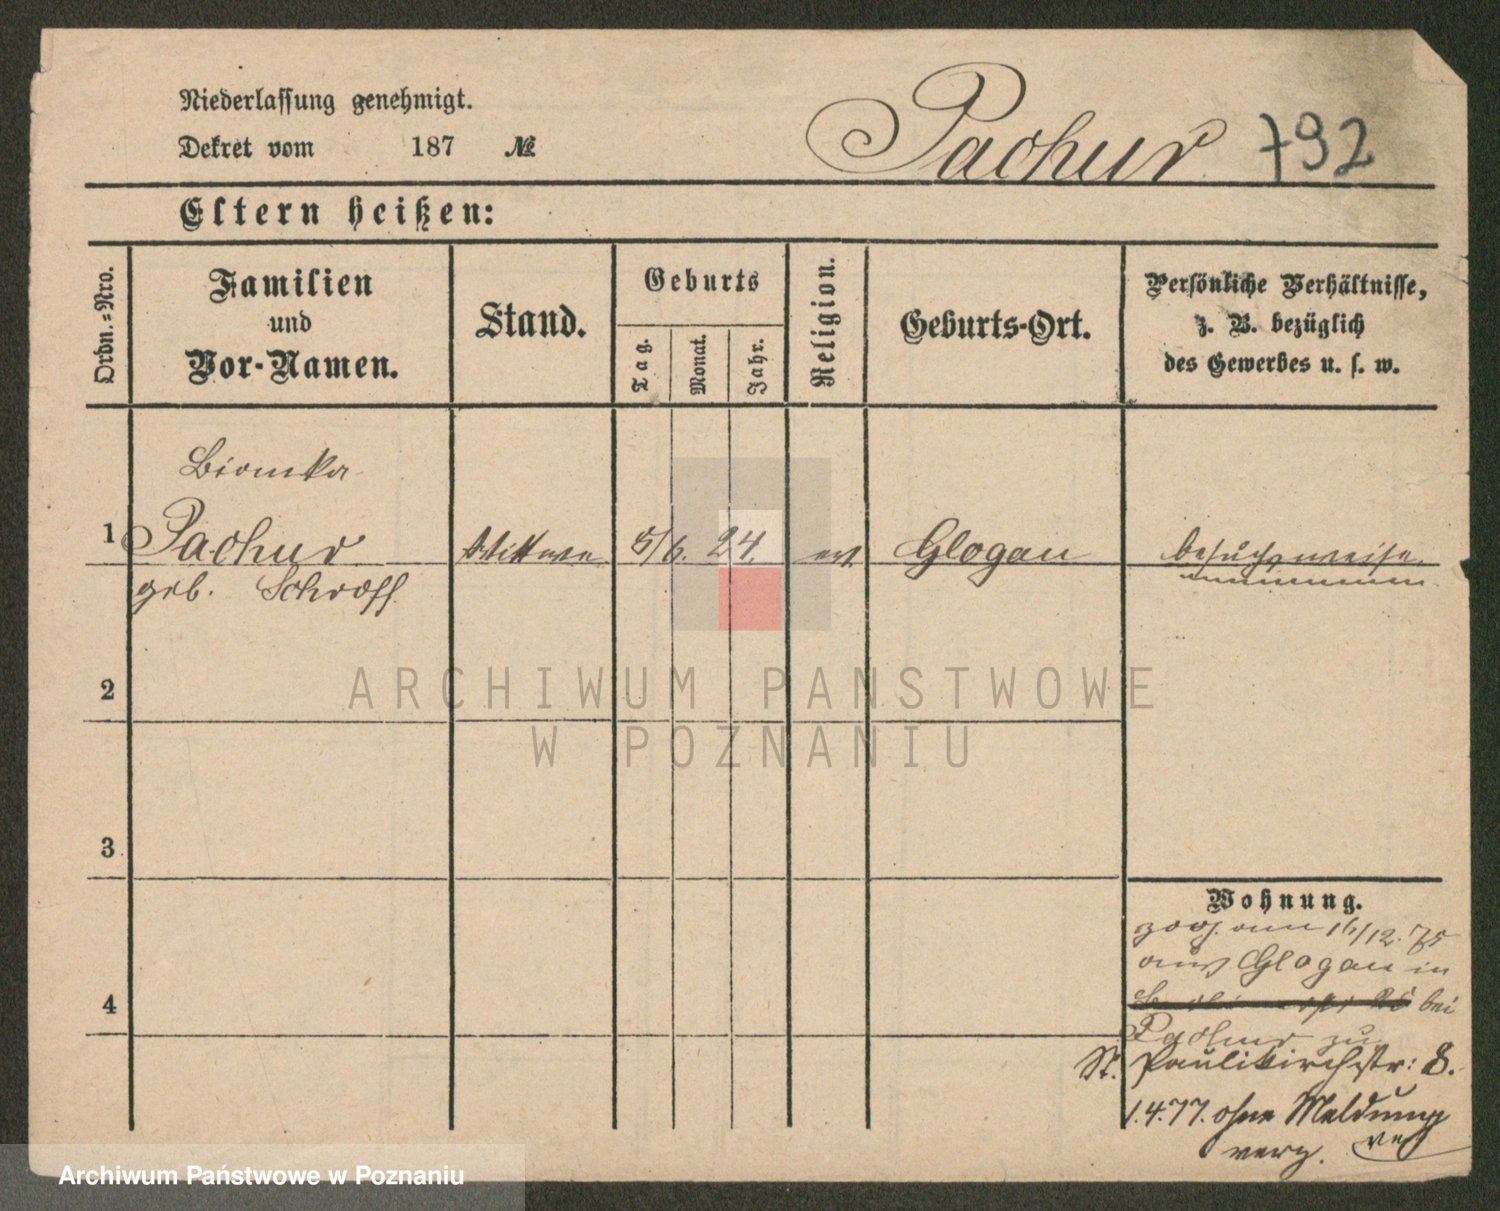 Niederlassung genehmigt.
Dekret vom 187 №
Pachur 792
Eltern heißen:
Ordn.-Nro.
Familien
und
Vor-Namen.
Stand.
Geburts
Tag.
Monat.
Jahr.
Religion.
Geburts-Ort.
Persönliche Verhältnisse,
z. B. bezüglich
des Gewerbes u. s. w.
Bianka
1 Pachur Wittwe 5/6. 24. ev. Glogau besuchsweise.
geb. Schroff
2
3
4
Wohnung.
am 16/12. 75
aus Glogau in
bei
Pachur zu
St. Paulikirchstr: 8.
1.4.77. ohne Meldung
verz.
ARCHIWUM PAŃSTWOWE
W POZNANIU
Archiwum Państwowe w Poznaniu